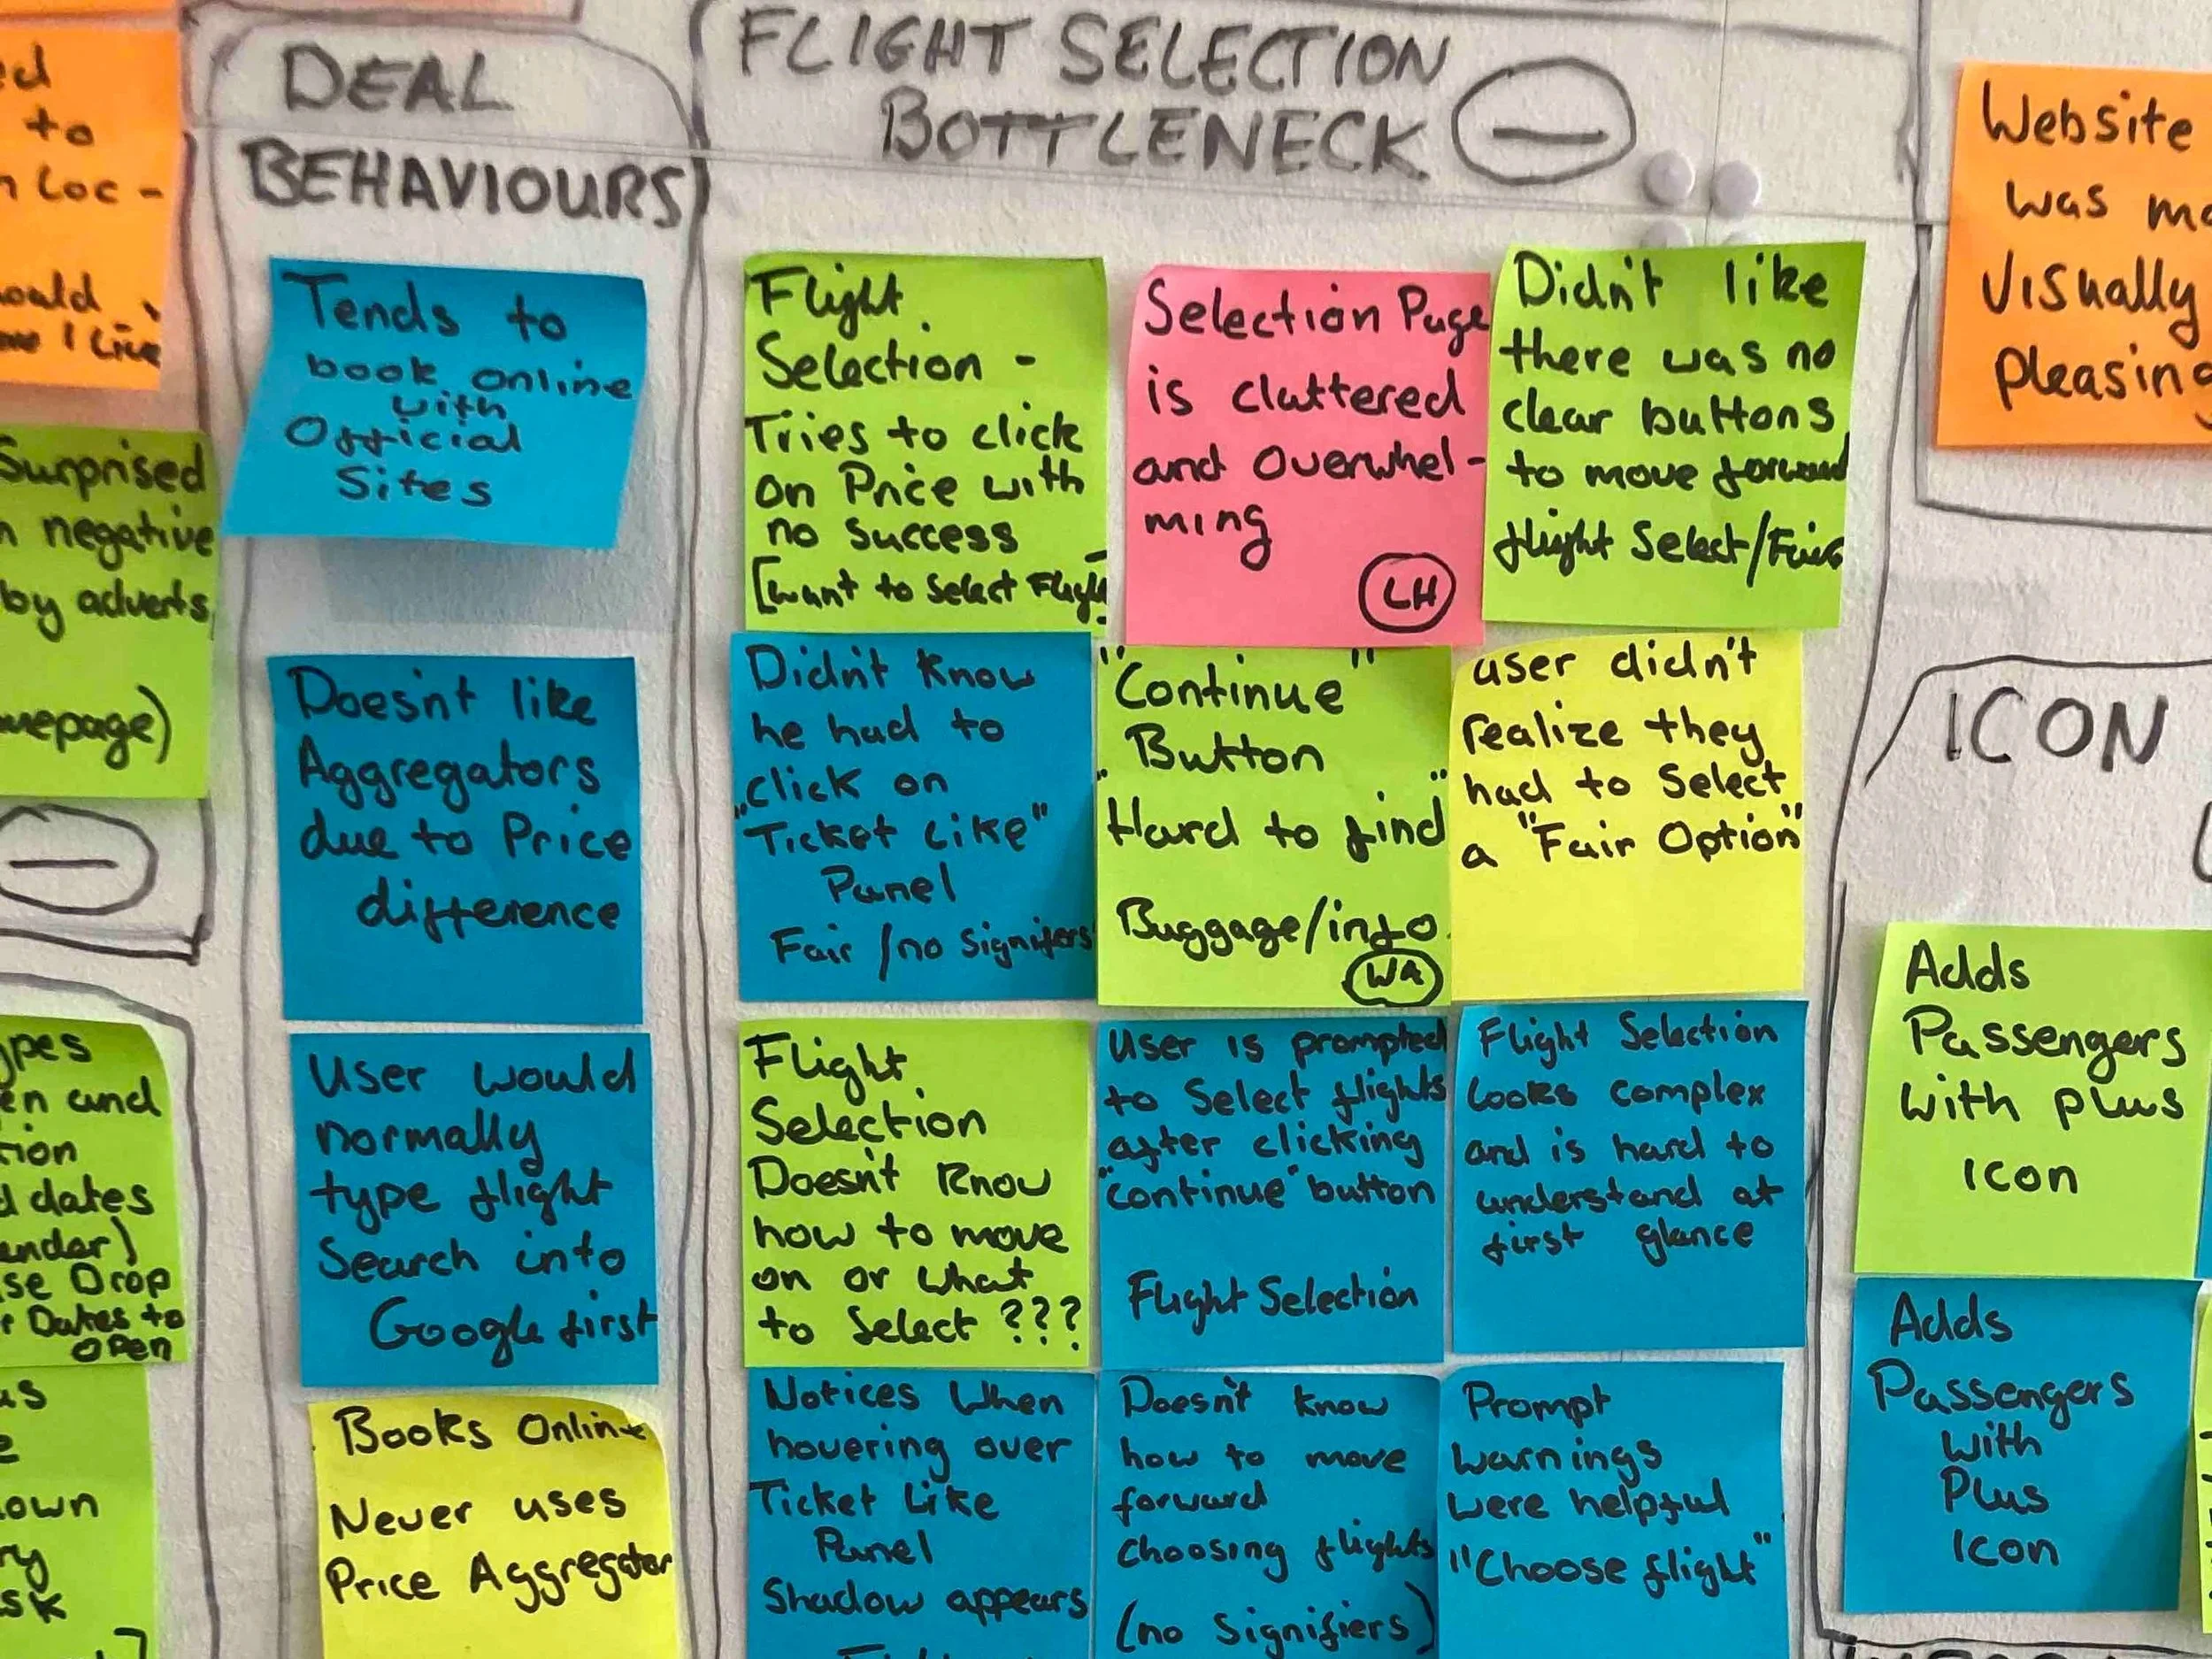 ed
to
n Loc-
ould
me I Live
Surprised
n negative
by adverts
mepage)
ypes
en and
tion
d dates
endar)
se Drop
r Dates to
open
us
e
own
ry
sk
DEAL
BEHAVIOURS
Tends to
book online
with
Official
Sites
Doesn't like
Aggregators
due to Price
difference
User would
normally
type flight
Search into
Google first
Books Online
Never uses
Price Aggregator
FLIGHT SELECTION
BOTTLENECK
Flight
Selection -
Tries to click
on Price with
no success
[want to select Flight
Selection Page
is cluttered
and overwhel-
ming
LH
Didn't like
there was no
clear buttons
to move forward
flight Select/Fair
Didn't know
he had to
click on
"Ticket Like"
Panel
Fair /no Signifers
"Continue"
Button
"Hard to find"
Buggage/info
WA
user didn't
realize they
had to Select
a "Fair Option"
Flight
Selection
Doesn't Know
how to move
on or what
to Select ???
User is prompted
to Select flights
after clicking
"continue" button
Flight Selection
Flight Selection
looks complex
and is hard to
understand at
first glance
Notices When
hovering over
Ticket Like
Panel
Shadow appears
Doesn't know
how to move
forward
choosing flights
(no Signifiers)
Prompt
warnings
were helpful
"Choose flight"
Website
was mo
Visually
pleasing
ICON
Adds
Passengers
with plus
icon
Adds
Passengers
with
Plus
Icon